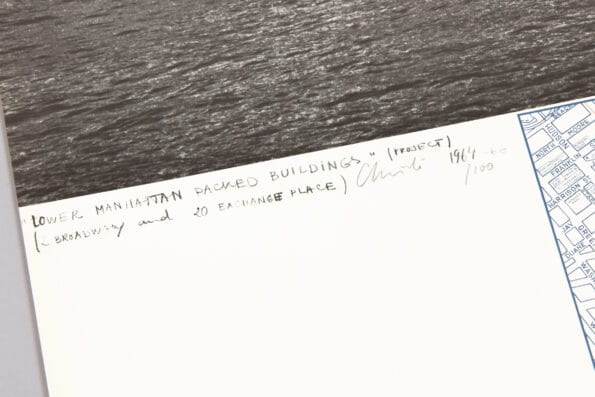 "LOWER MANHATTAN PACKED BUILDINGS" (PROJECT)
(2 BROADWAY and 20 EXCHANGE PLACE) Christo 1964-66
/100
HUDSON
MOORE
NORTH
FRANKLIN
HARRISON S
JAY
DUANE
GRE
WASH